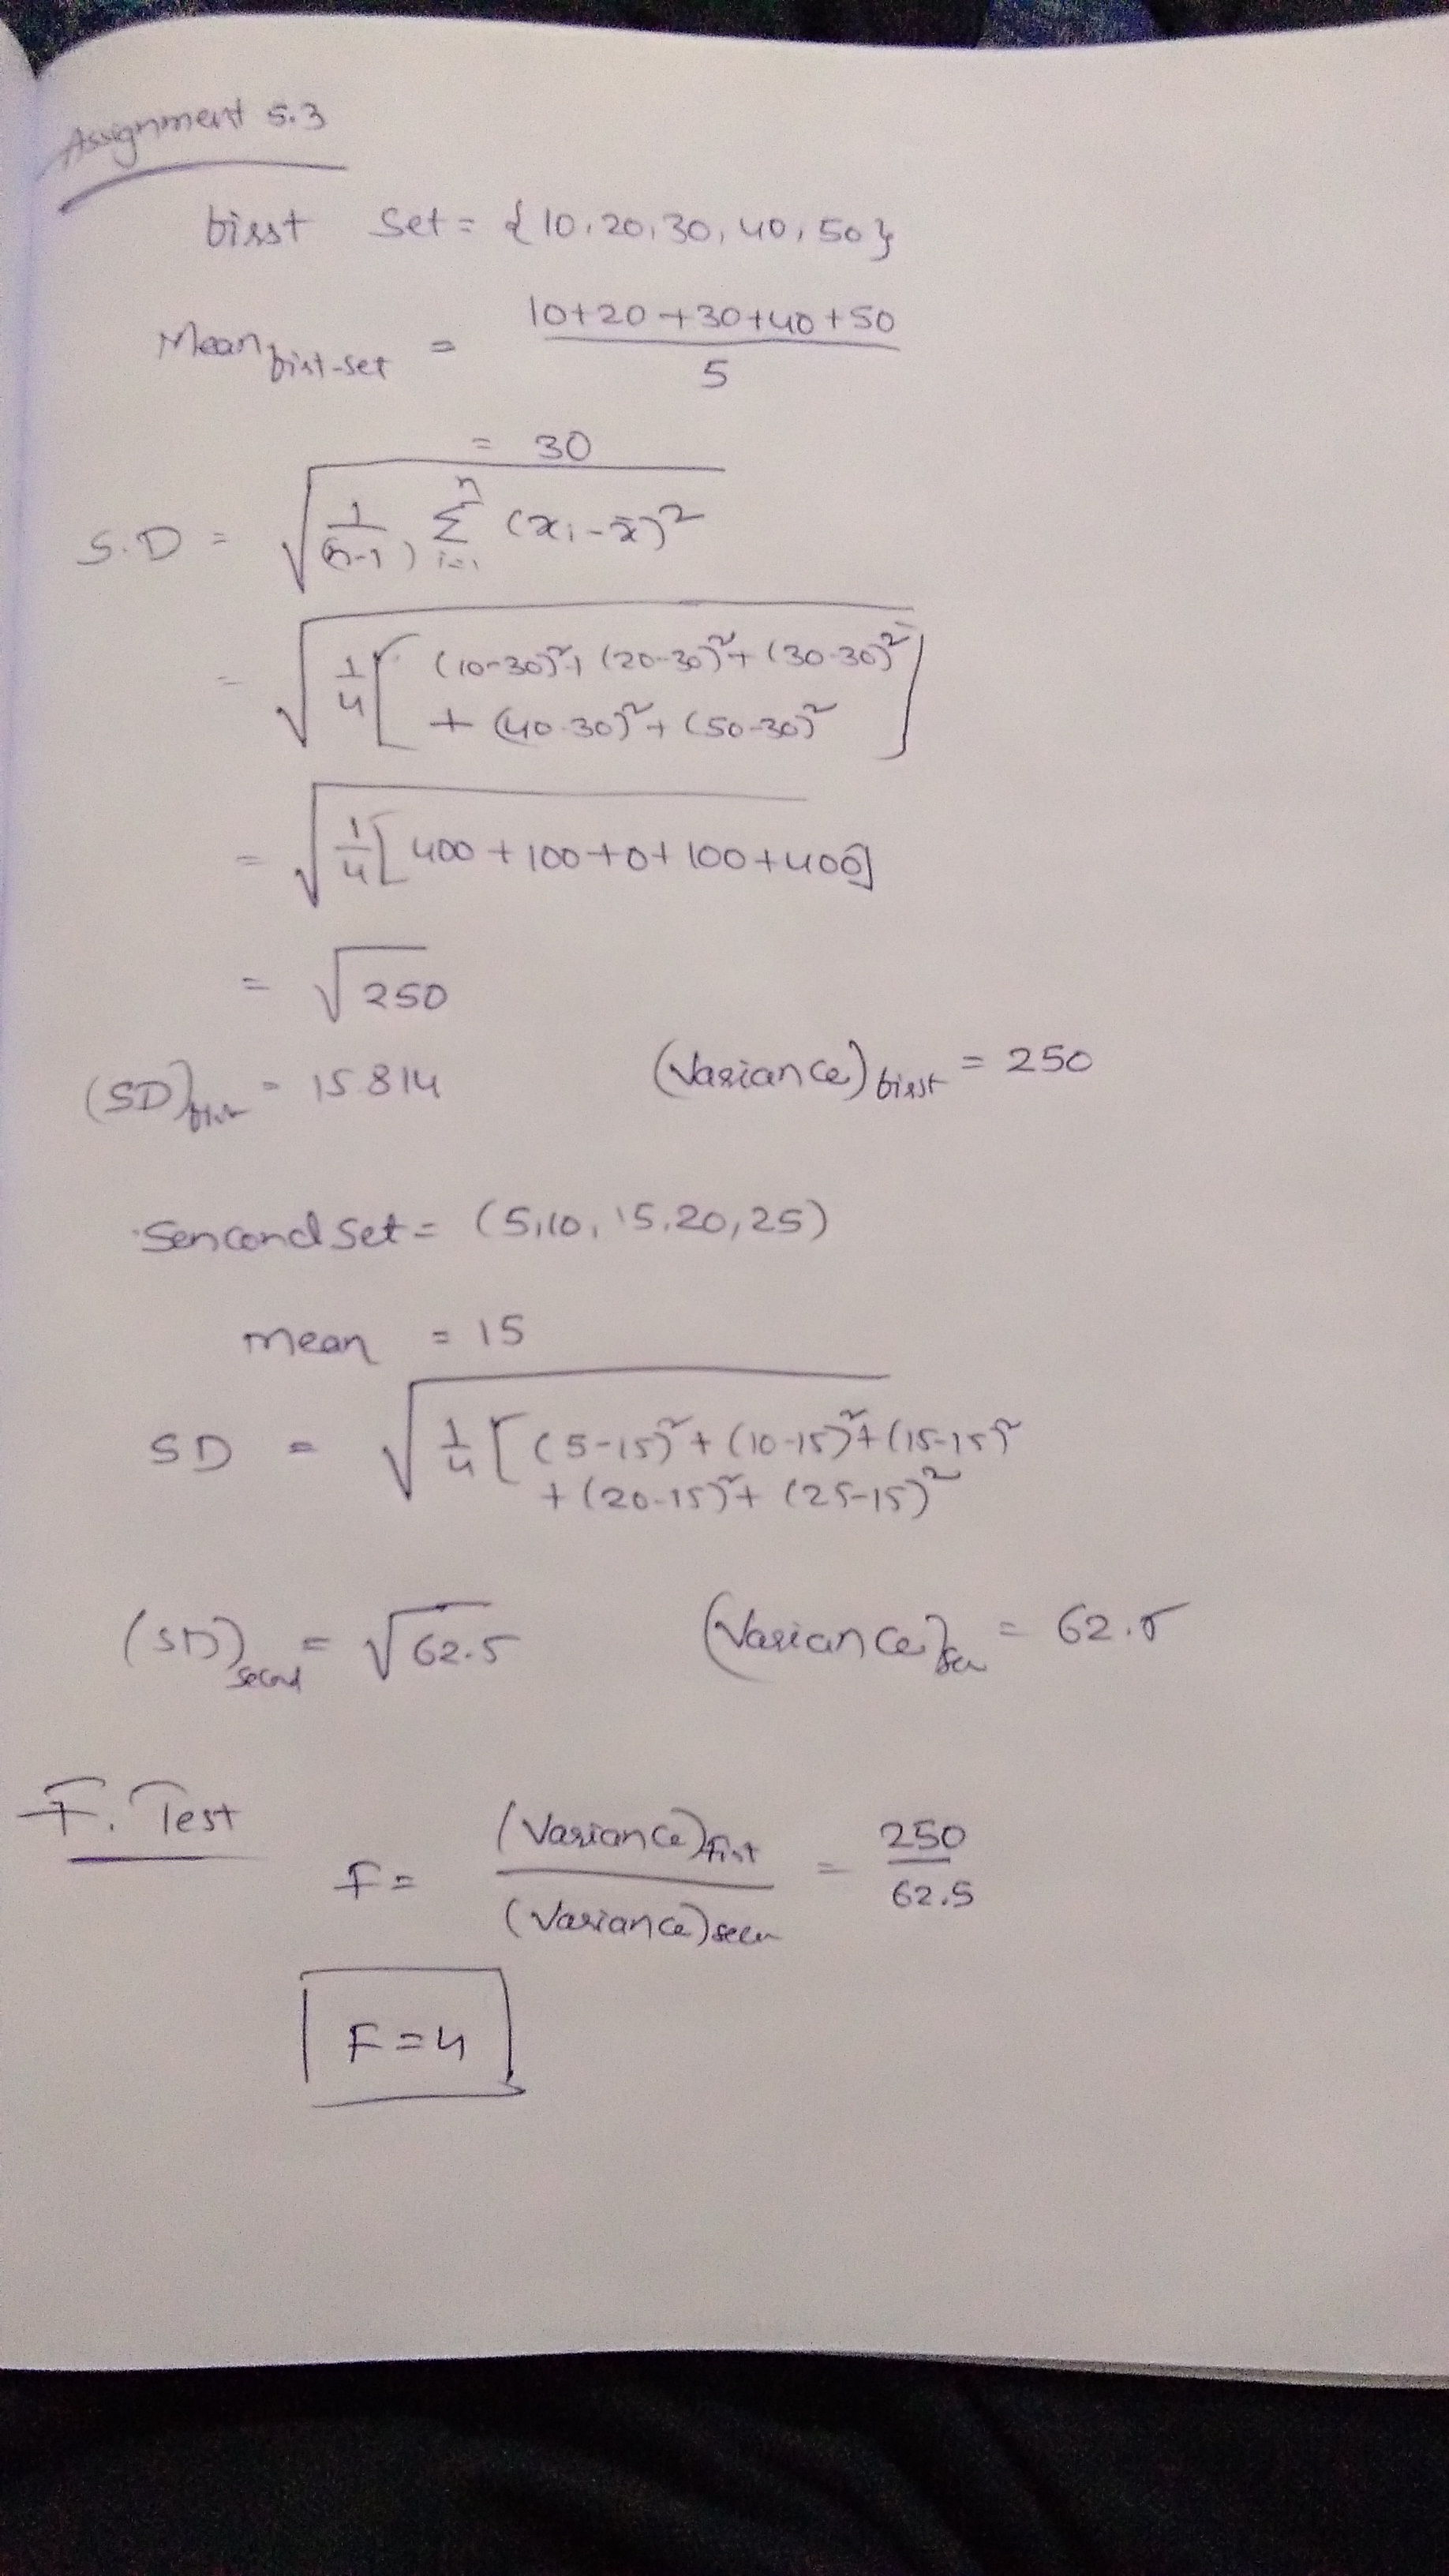 Assignment 5.3
first set = {10, 20, 30, 40, 50}
Mean first-set = (10+20+30+40+50)/5
= 30
S.D = √(1/(n-1) Σ_{i=1}^{n} (xᵢ - x̄)²)
= √(1/4 [(10-30)² + (20-30)² + (30-30)²
+ (40-30)² + (50-30)²])
= √(1/4 [400 + 100 + 0 + 100 + 400])
= √250
(SD)first = 15.814 (Variance)first = 250
Sencond Set = (5, 10, 15, 20, 25)
mean = 15
SD = √(1/4 [(5-15)² + (10-15)² + (15-15)²
+ (20-15)² + (25-15)²
(SD)second = √62.5 (Variance)sec = 62.5
F. Test
F = (Variance)first / (Variance)secn = 250/62.5
F = 4